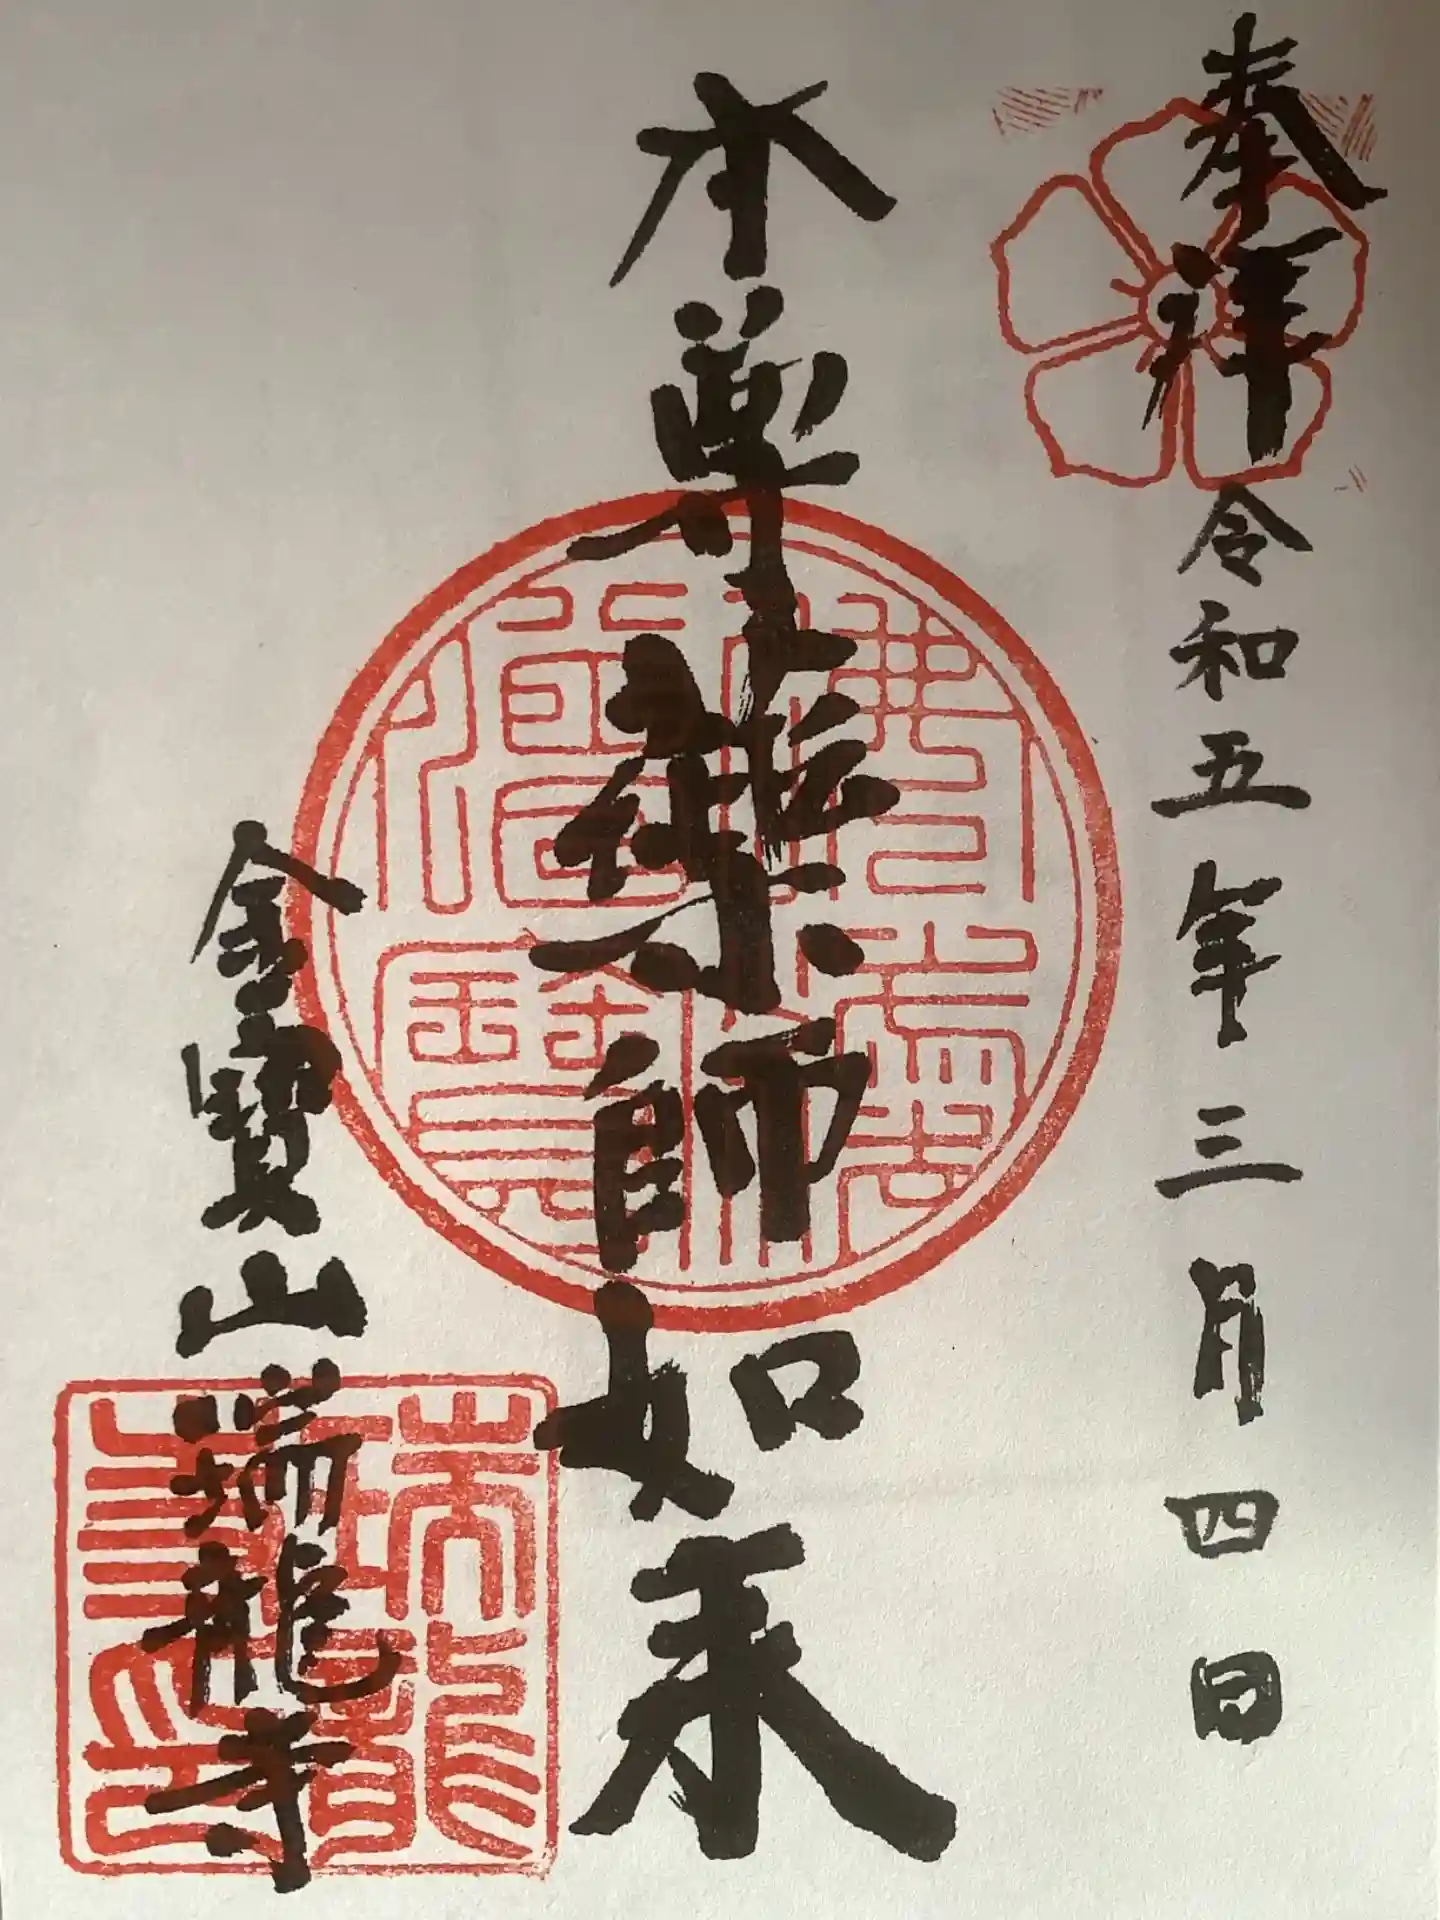 奉拝
令和五年三月四日
本尊薬師如来
金寶山瑞龍寺